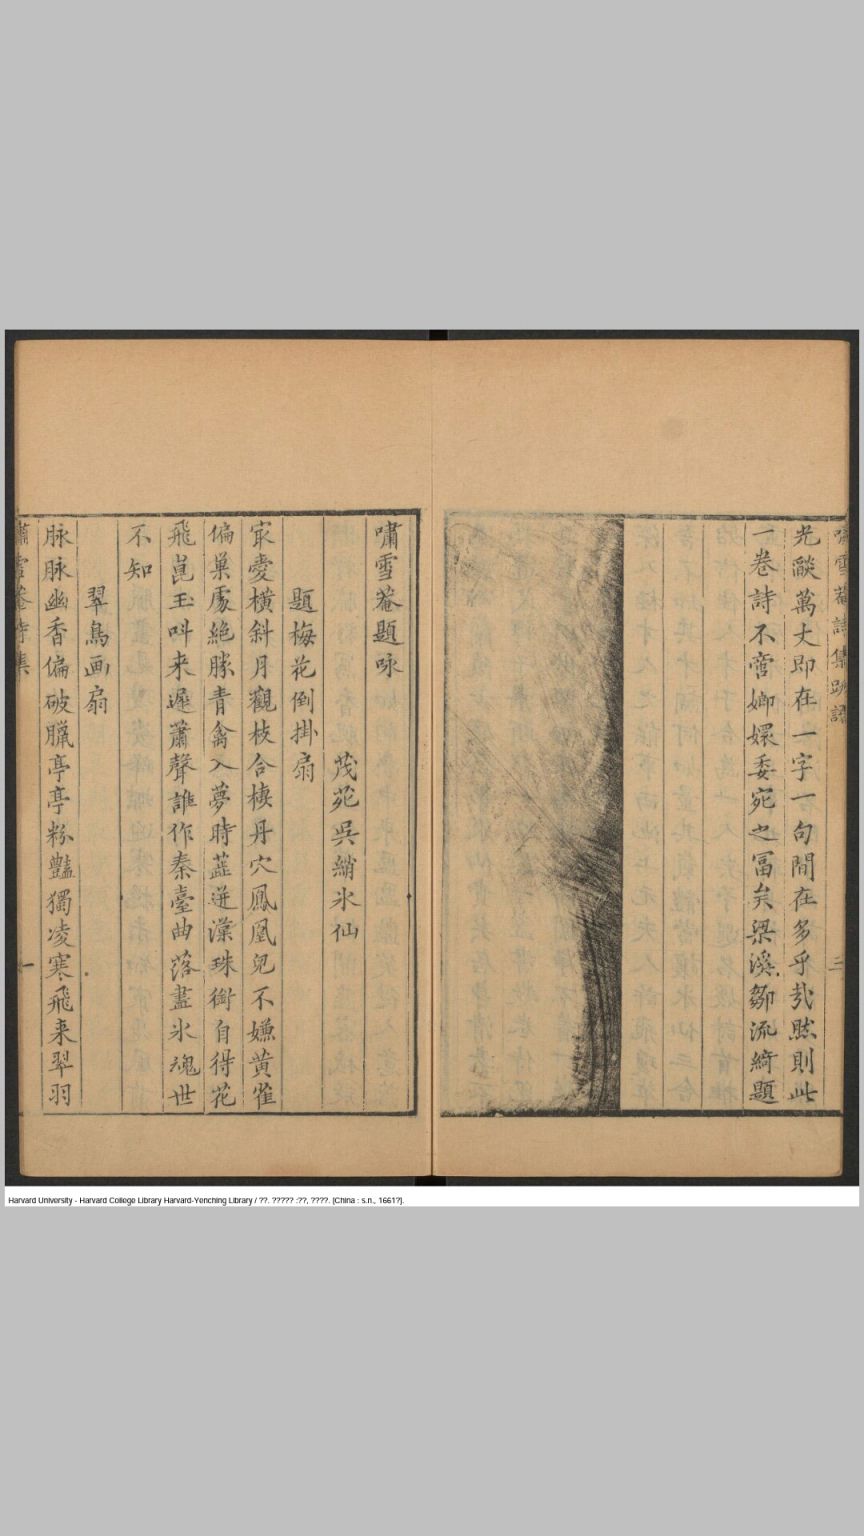 嘯雪菴詩集跋語
光燄萬丈即在一字一句間在多乎哉然則此
一卷詩不啻嫏嬛委宛之富矣梁溪鄒流綺題
三
嘯雪菴題咏
茂苑吳綃氷仙
題梅花倒掛扇
㝡愛橫斜月觀枝合棲丹穴鳳凰兒不嫌黃雀
偏巢處絕勝青禽入夢時蕋迸濛珠銜自得花
飛崑玉呌来遲蕭聲誰作秦臺曲落盡氷魂世
不知
翠鳥画扇
脉脉幽香偏破臘亭亭粉豔獨凌寒飛来翠羽
嘯雪菴詩集
一
Harvard University - Harvard College Library Harvard-Yenching Library / ??. ????? :??, ????. [China : s.n., 1661?].